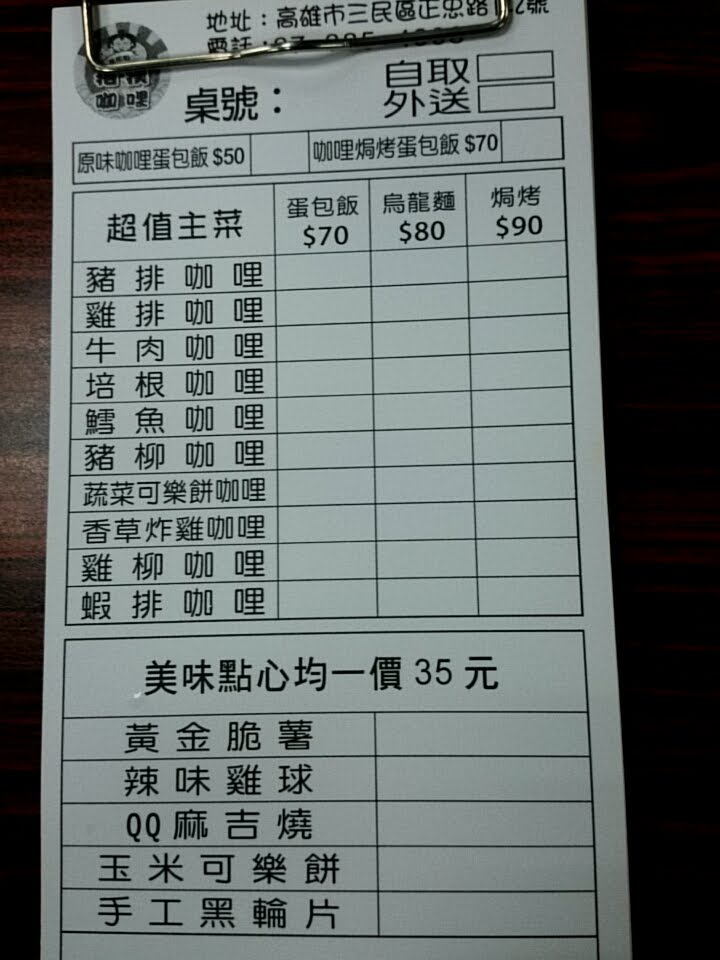 地址：高雄市三民區正忠路 2號
電話
咖哩
桌號：
自取
外送
原味咖哩蛋包飯 $50
咖哩焗烤蛋包飯 $70
超值主菜 蛋包飯 $70 烏龍麵 $80 焗烤 $90
豬排咖哩
雞排咖哩
牛肉咖哩
培根咖哩
鱈魚咖哩
豬柳咖哩
蔬菜可樂餅咖哩
香草炸雞咖哩
雞柳咖哩
蝦排咖哩
美味點心均一價 35 元
黃金脆薯
辣味雞球
QQ麻吉燒
玉米可樂餅
手工黑輪片